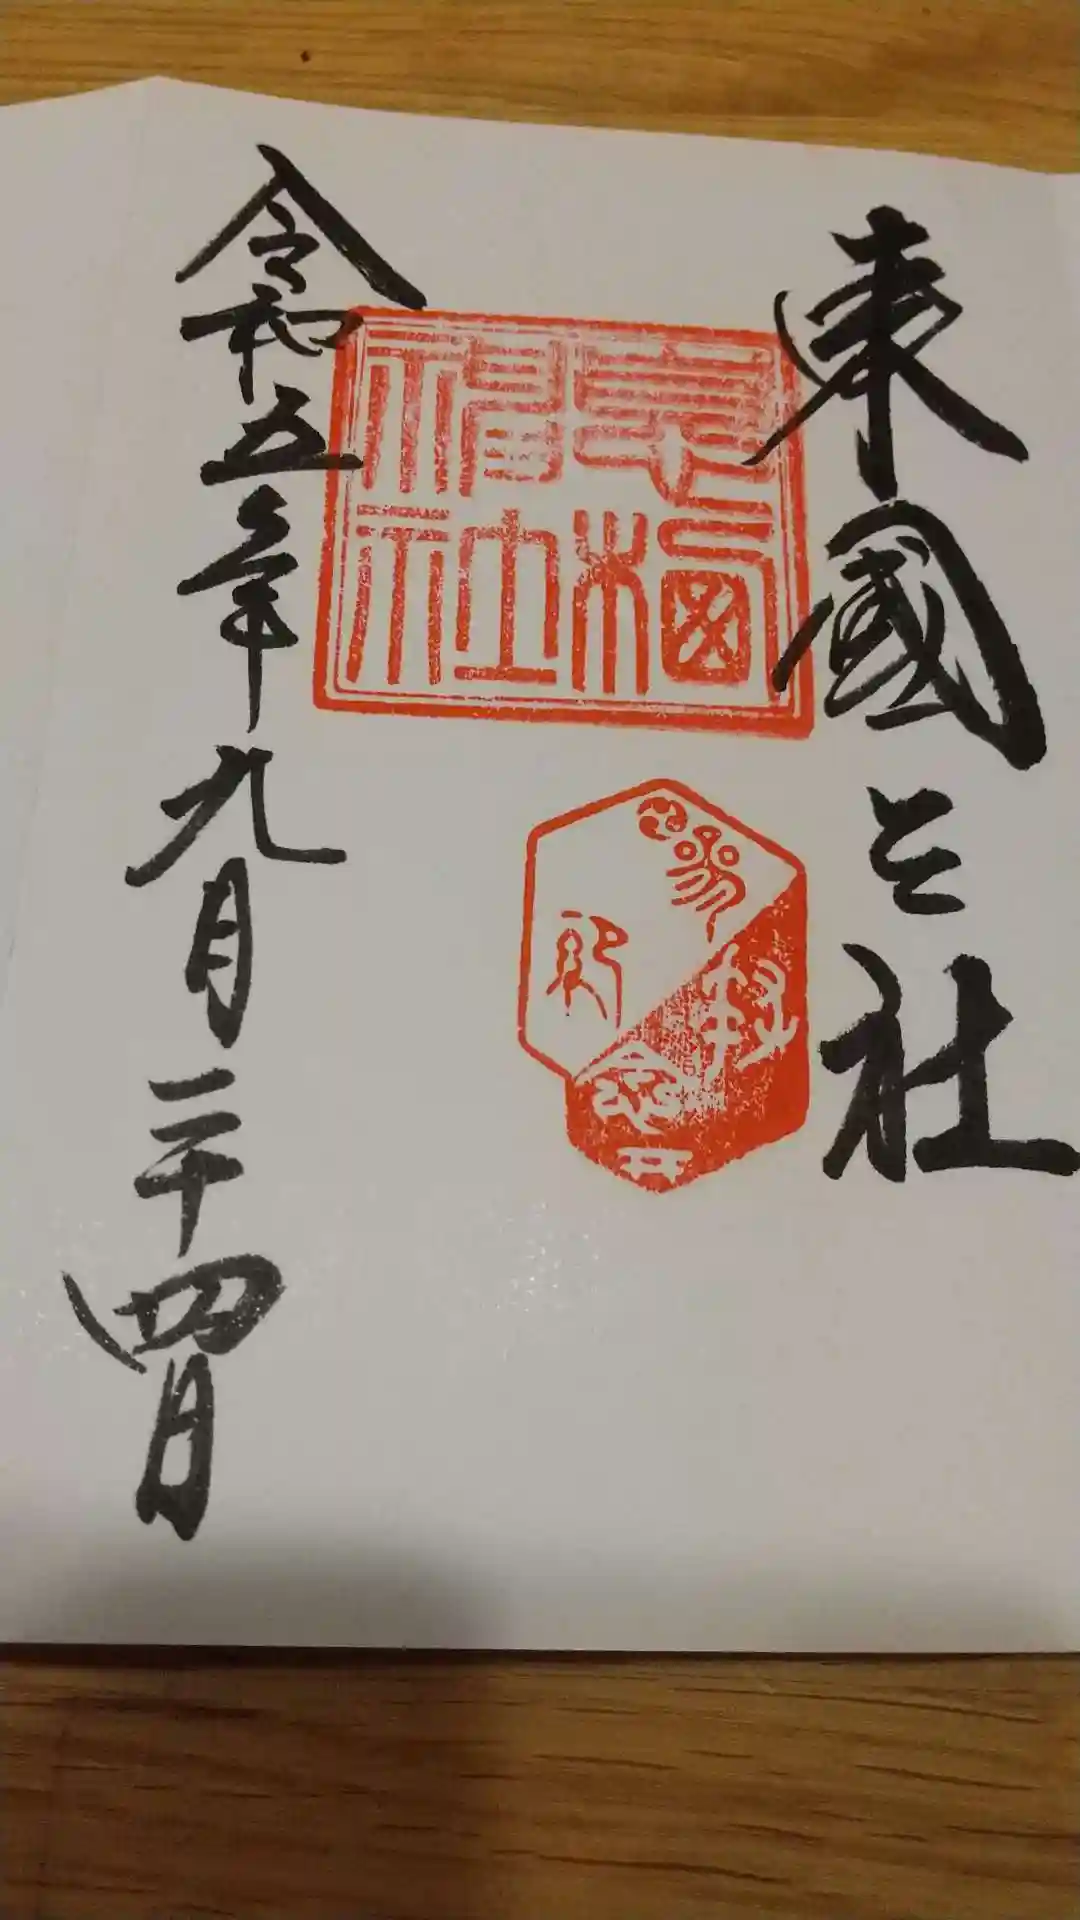 東國三社
息栖神社
令和五年九月二十四日